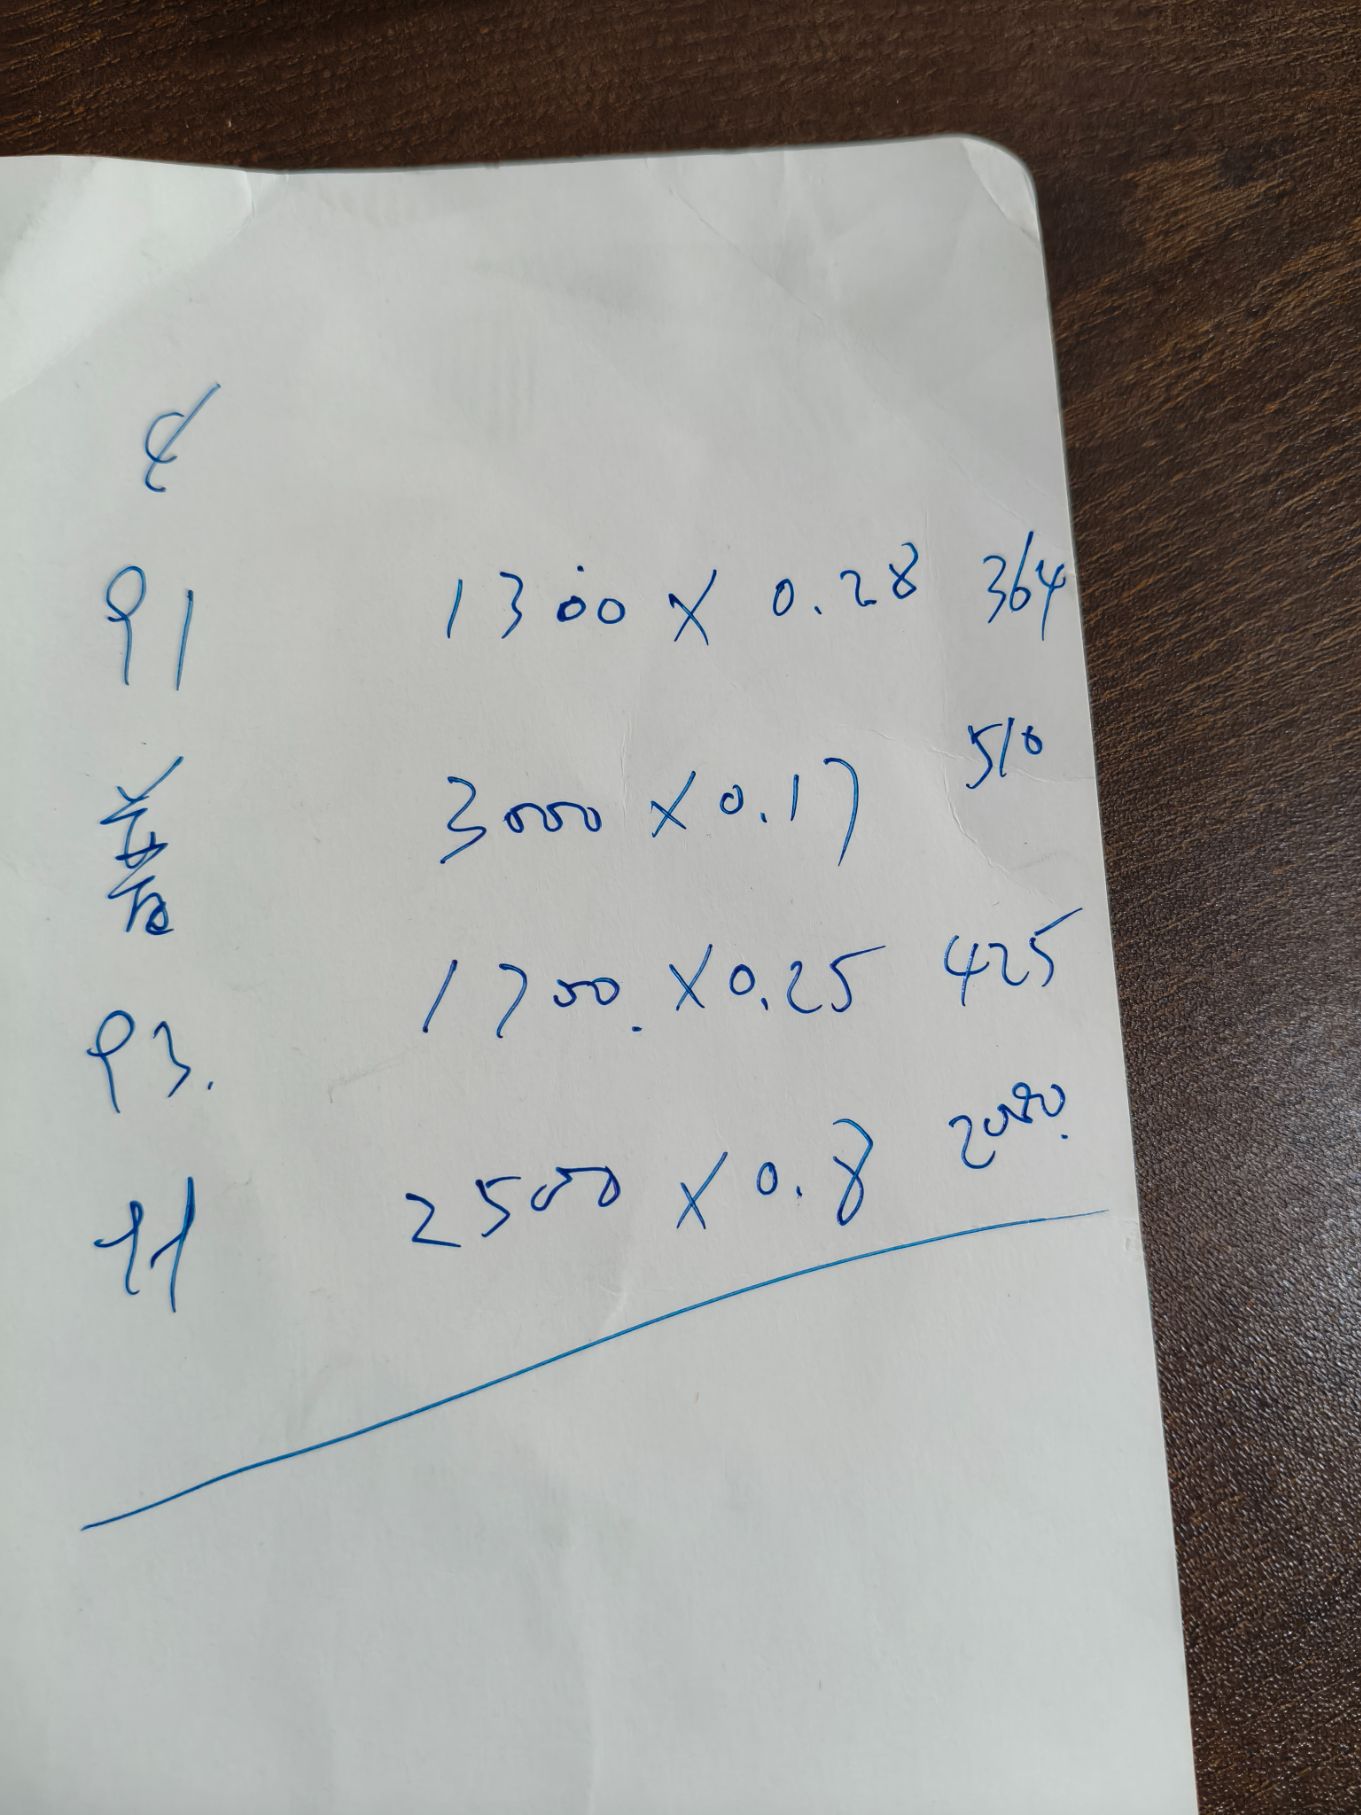 91 1300 X 0.28 364
3000 X 0.17 510
93. 1700. X 0.25 425
2500 X 0.8 2000.